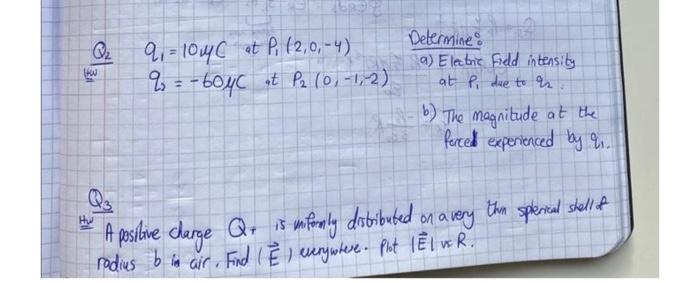 Q2 q₁ = 10μC at P₁ (2,0,-4)
Hw q₂ = -60μC at P₂ (0,-1,-2)
Determine:
a) Electric Field intensity
at P₁ due to q₂.
b) The magnitude at the
forced experienced by q₁.
Q3
Hw A positive charge Q+ is uniformly distributed on a very thin spherical shell of
radius b in air. Find (E⃗) everywhere. Plot |E⃗| vs R.